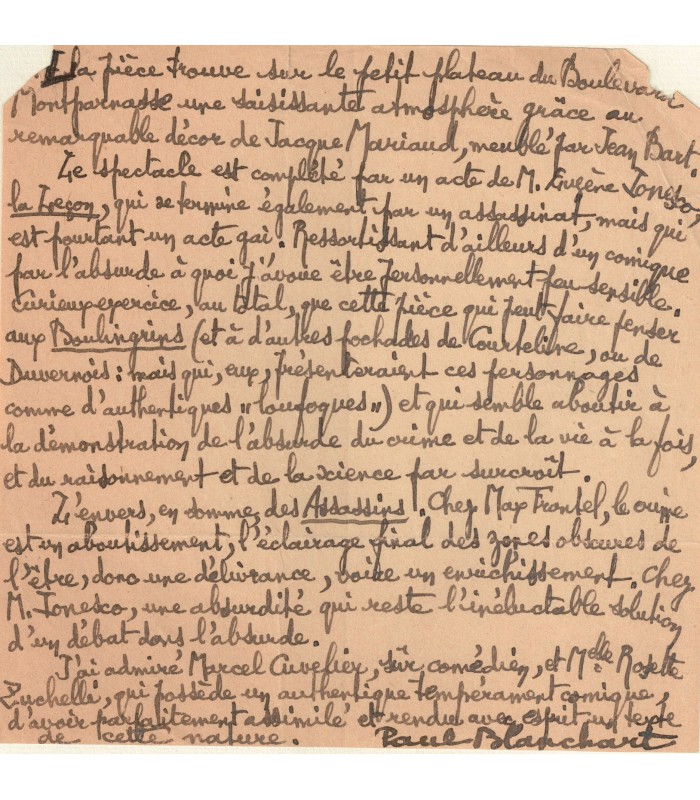 La pièce trouve sur le petit plateau du Boulevard
Montparnasse une saisissante atmosphère grâce au
remarquable décor de Jacque Mariaud, meublé par Jean Bart.
Le spectacle est complété par un acte de M. Eugène Ionesco,
la Leçon, qui se termine également par un assassinat, mais qui
est pourtant un acte gai. Ressortissant d'ailleurs d'un comique
par l'absurde à quoi j'avoue être personnellement peu sensible.
Curieux exercice, au total, que cette pièce qui peut faire penser
aux Boulingrins (et à d'autres pochades de Courteline, ou de
Duvernois : mais qui, eux, présenteraient ces personnages
comme d'authentiques "loufoques") et qui semble aboutir à
la démonstration de l'absurde du crime et de la vie à la fois,
et du raisonnement et de la science par surcroît.
L'envers, en somme, des Assassins. Chez Max Frantel, le crime
est un aboutissement, l'éclairage final des zones obscures de
l'être, donc une délivrance, voire un enrichissement. Chez
M. Ionesco, une absurdité qui reste l'inéluctable solution
d'un débat dans l'absurde.
J'ai admiré Marcel Cuvelier, sûr comédien, et Melle Rosette
Zuchelli, qui possède un authentique tempérament comique,
d'avoir parfaitement assimilé et rendu avec esprit un texte
de cette nature. Paul Blanchart